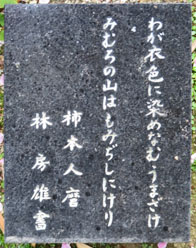 わが衣色に染めなむうまざけ
みむろの山はもみぢしにけり
柿本人麿
林房雄書